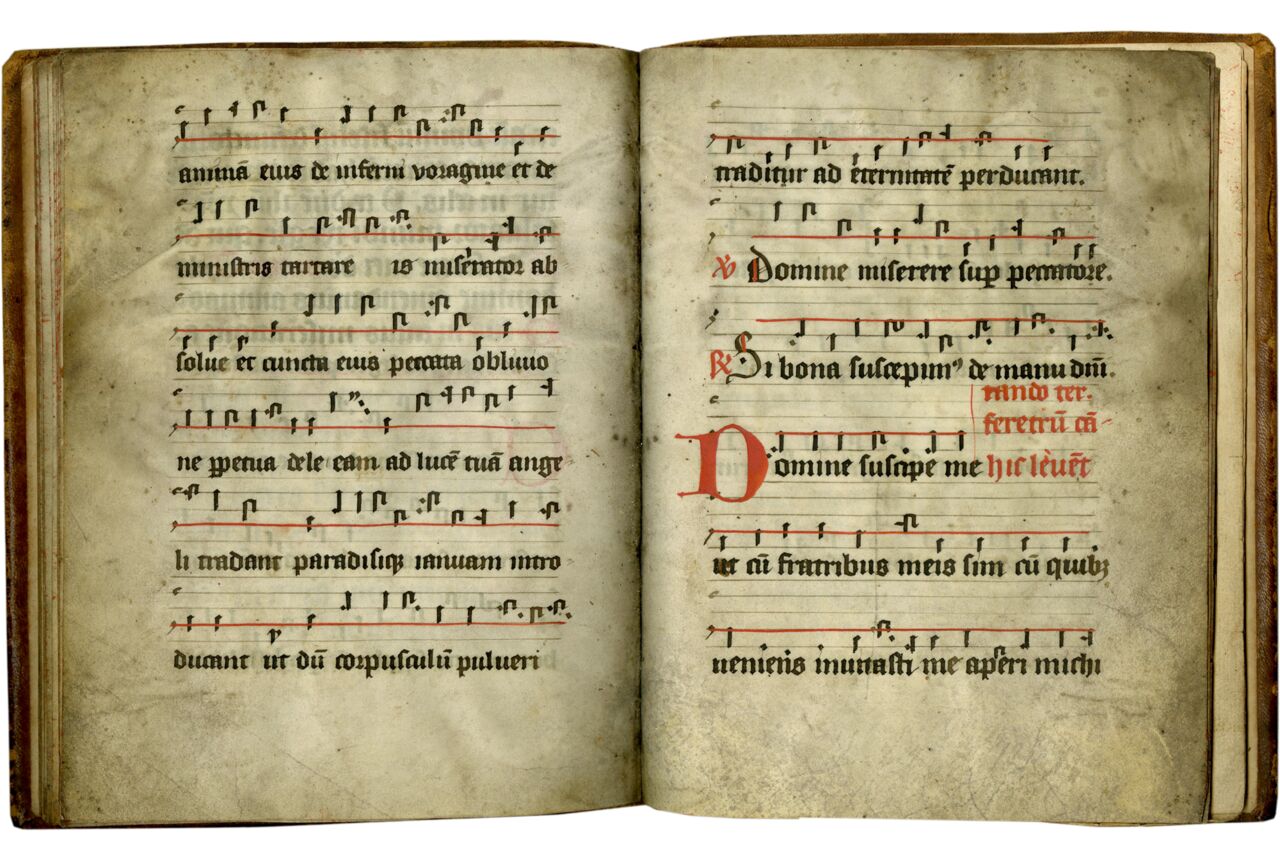 animā eius de inferni voragine et de
ministris tartare is miserator ab
solue et cuncta eius peccata obliuio
ne ꝑpetua dele eam ad lucē tuā ange
li tradant paradisiqꝫ ianuam intro
ducant ut dū corpusculū pulueri
traditur ad eternitatē perducant.
℣ Domine miserere suꝑ peccatore.
℟ Si bona suscepimꝰ de manu dn̄i.
rando ter.
feretrū cā-
Domine suscipe me hic leuēt
ut cū fratribus meis sim cū quibꝫ
ueniens inuitasti me aperi michi